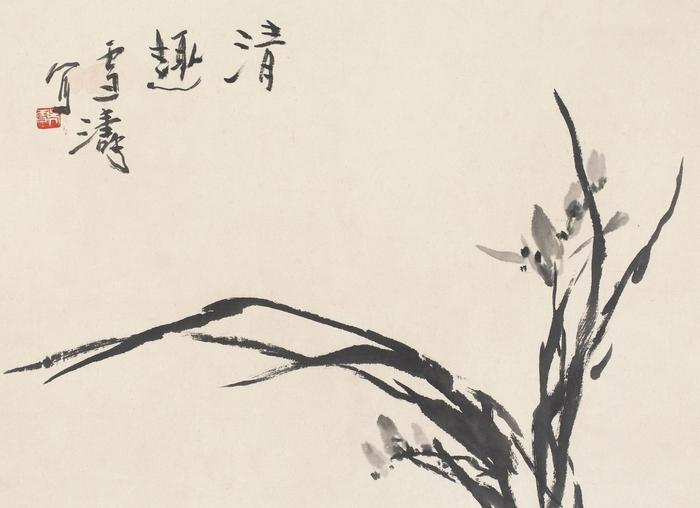 清趣
雪濤
寫